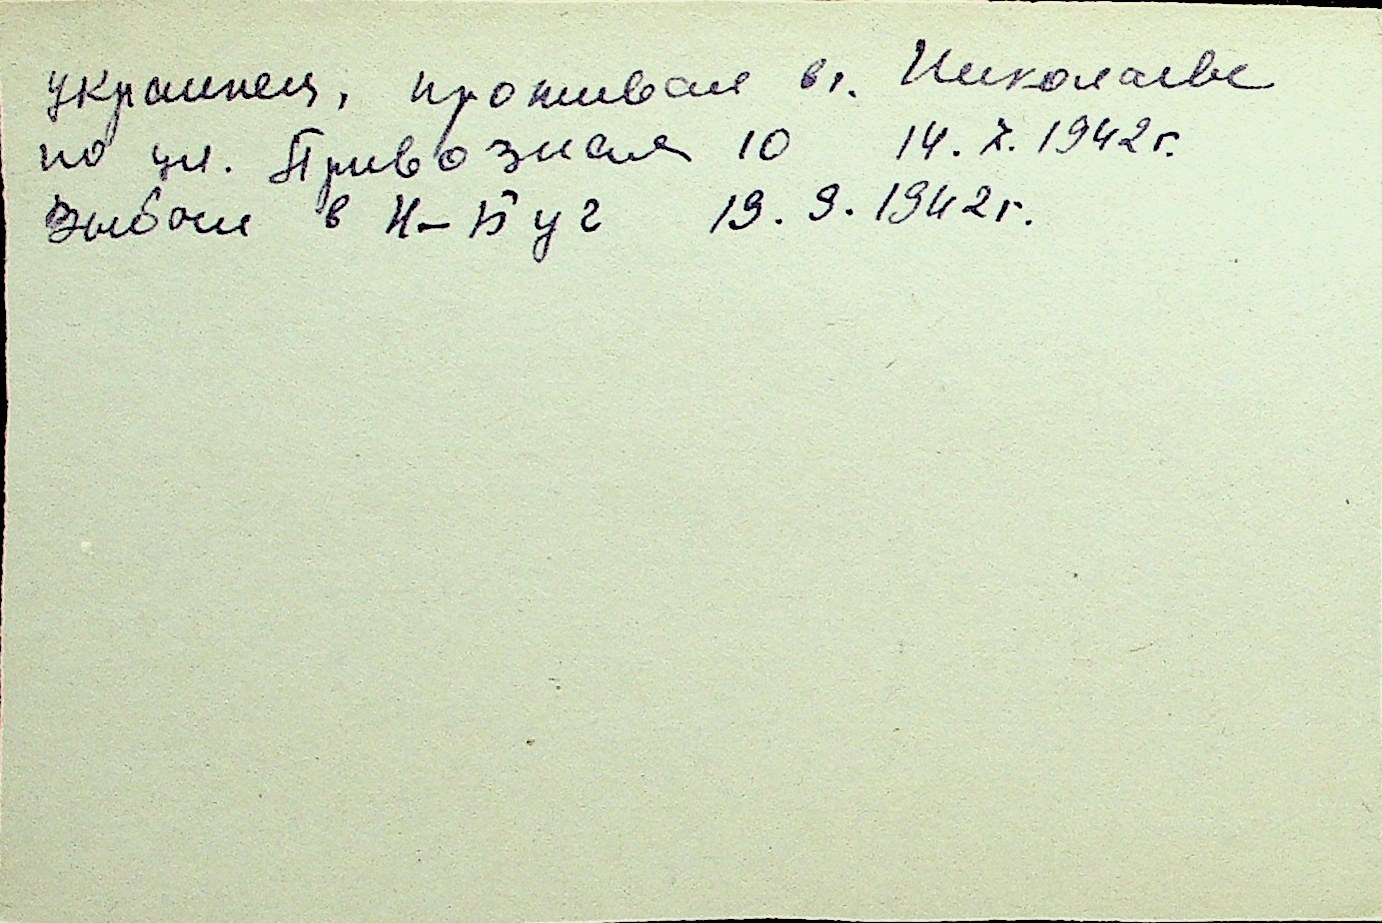 украинец, проживал в г. Николаеве
по ул. Привозная 10 14.7.1942г.
выбыл в Н-Буг 19.9.1942г.